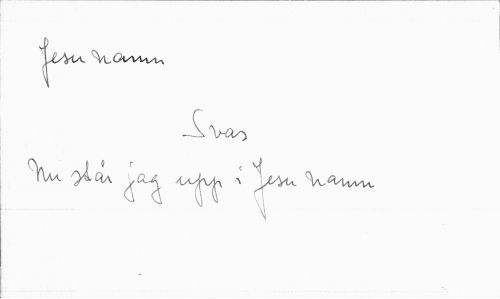 Jesu namn
Svas
Nu står jag upp i Jesu namn